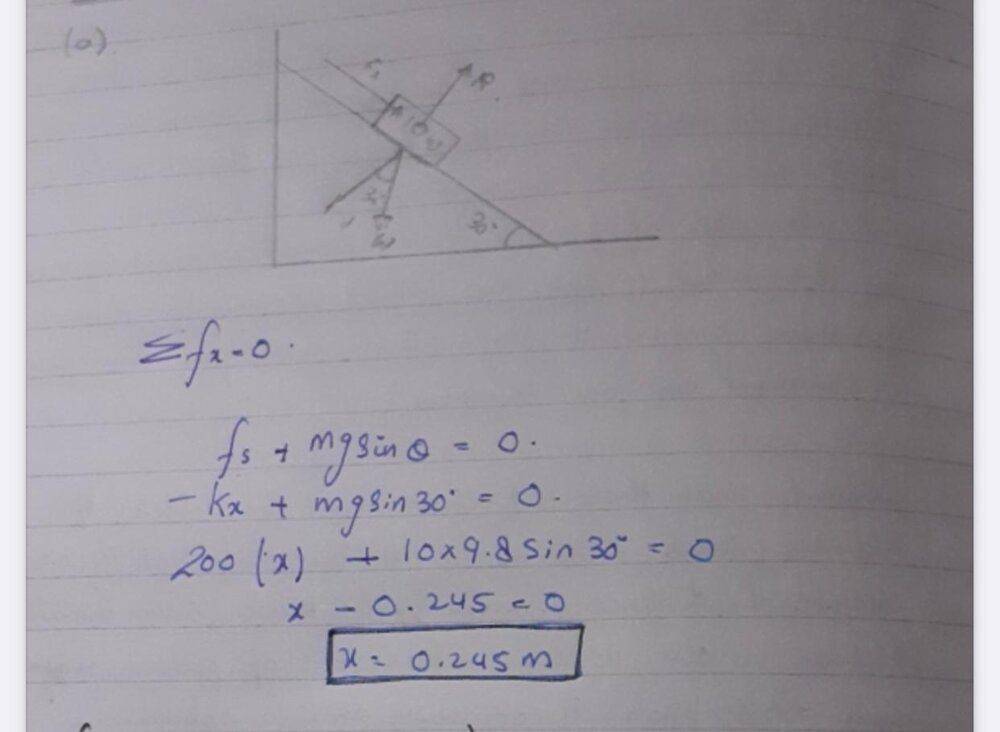 (a)
R
30°
Σfx=0.
fs + mg sin θ = 0.
- kx + mg sin 30° = 0.
200 (x) + 10x9.8 sin 30° = 0
x - 0.245 = 0
x = 0.245 m